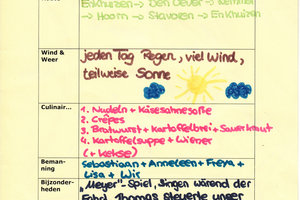 Enkhuizen → Den Oever → Kemmer
→ Hoorn → Stavoren → Enkhuizen
Wind & Weer
jeden Tag Regen, viel Wind,
teilweise Sonne
Culinair...
1. Nudeln + Käsesahnesoße
2. Crêpes
3. Bratwurst + Kartoffelbrei + Sauerkraut
4. Kartoffelsuppe + Wiener
(+ Kekse)
Beman-
ning
Sebastiaan + Anneleen + Freya +
Lisa + Wir
Bijzonder-
heden
"Meyer"-Spiel, Singen wärend der
Fahrt, Thomas steuerte unser